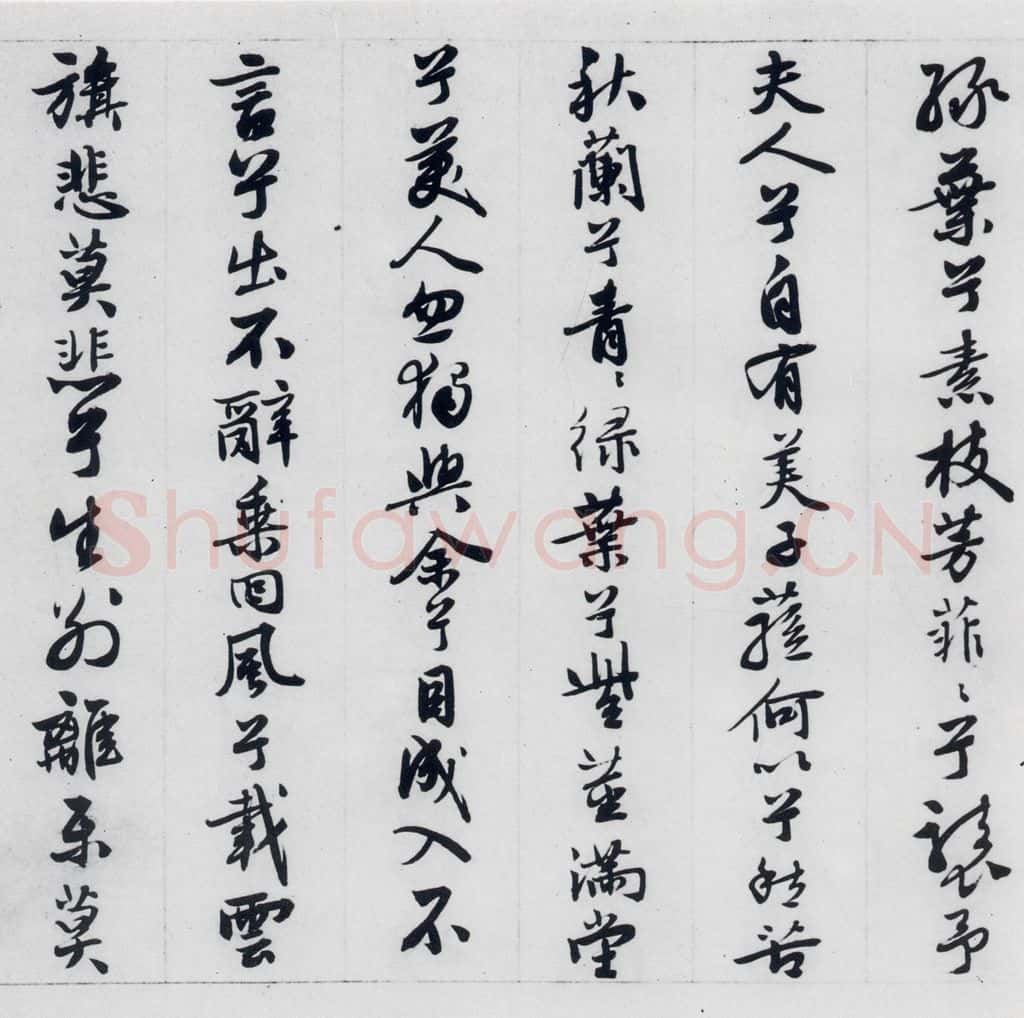 緑葉兮素枝芳菲〻兮襲予
夫人兮自有美子蓀何以兮愁苦
秋蘭兮青〻緑葉兮紫莖滿堂
兮美人忽獨與余兮目成入不
言兮出不辭乘回風兮載雲
旗悲莫悲兮生別離樂莫
Shufawang.CN